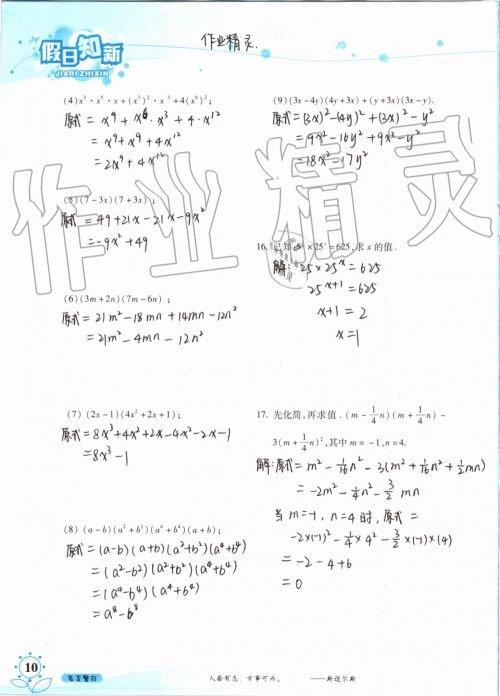 假日知新
JIARI ZHIXIN
作业精灵.
(4) x³·x⁵·x+(x³)²·x³+4(x⁶)²;
原式= x⁹+x⁶·x³+4·x¹²
= x⁹+x⁹+4x¹²
= 2x⁹+4x¹²
(5)(7-3x)(7+3x);
原式= 49+21x-21x-9x²
= -9x²+49
(6)(3m+2n)(7m-6n);
原式= 21m²-18mn+14mn-12n²
= 21m²-4mn-12n²
(7) (2x-1)(4x²+2x+1);
原式= 8x³+4x²+2x-4x²-2x-1
= 8x³-1
(8) (a-b)(a²+b²)(a⁴+b⁴)(a+b);
原式= (a-b)(a+b)(a²+b²)(a⁴+b⁴)
= (a²-b²)(a²+b²)(a⁴+b⁴)
= (a⁴-b⁴)(a⁴+b⁴)
= a⁸-b⁸
(9)(3x-4y)(4y+3x)+(y+3x)(3x-y).
原式= (3x)²-(4y)²+(3x)²-y²
= 9x²-16y²+9x²-y²
= 18x²-17y²
16. 已知 5²×25ˣ=625,求 x 的值.
解: 25×25ˣ=625
25ˣ⁺¹=625
x+1=2
x=1
17. 先化简,再求值. (m-1/4n)(m+1/4n)-
3(m+1/4n)²,其中 m=-1,n=4.
解:原式= m²-1/16n²-3(m²+1/16n²+1/2mn)
= -2m²-1/4n²-3/2mn
当 m=-1, n=4 时, 原式=
-2×(-1)²-1/4×4²-3/2×(-1)×(4)
= -2-4+6
= 0
作业精灵
10
名言警句
人若有志,万事可为。 ——斯迈尔斯